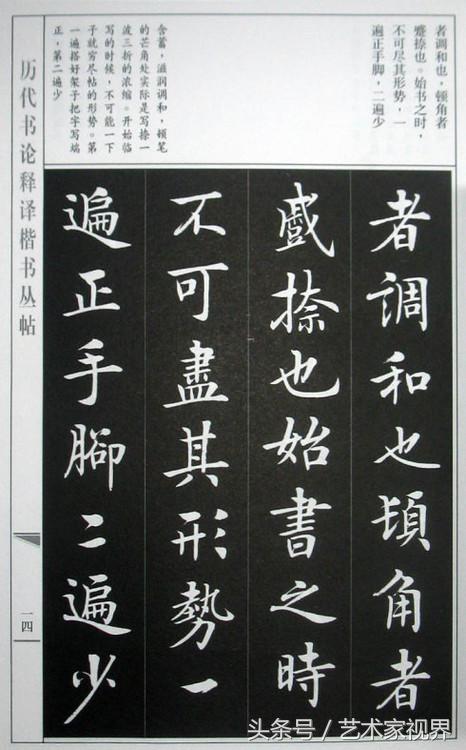 者调和也，顿角者
蹙捺也。始书之时，
不可尽其形势，一
遍正手脚，二遍少
含蓄，滋润调和，顿笔
的芒角处实际是写捺一
波三折的浓缩。开始临
写的时候，不可能一下
子就穷尽帖的形势。第
一遍搭好架子把字写端
正，第二遍少
者調和也頓角者
蹙捺也始書之時
不可盡其形勢一
遍正手腳二遍少
历代书论释译楷书丛帖
一四
头条号/艺术家视界